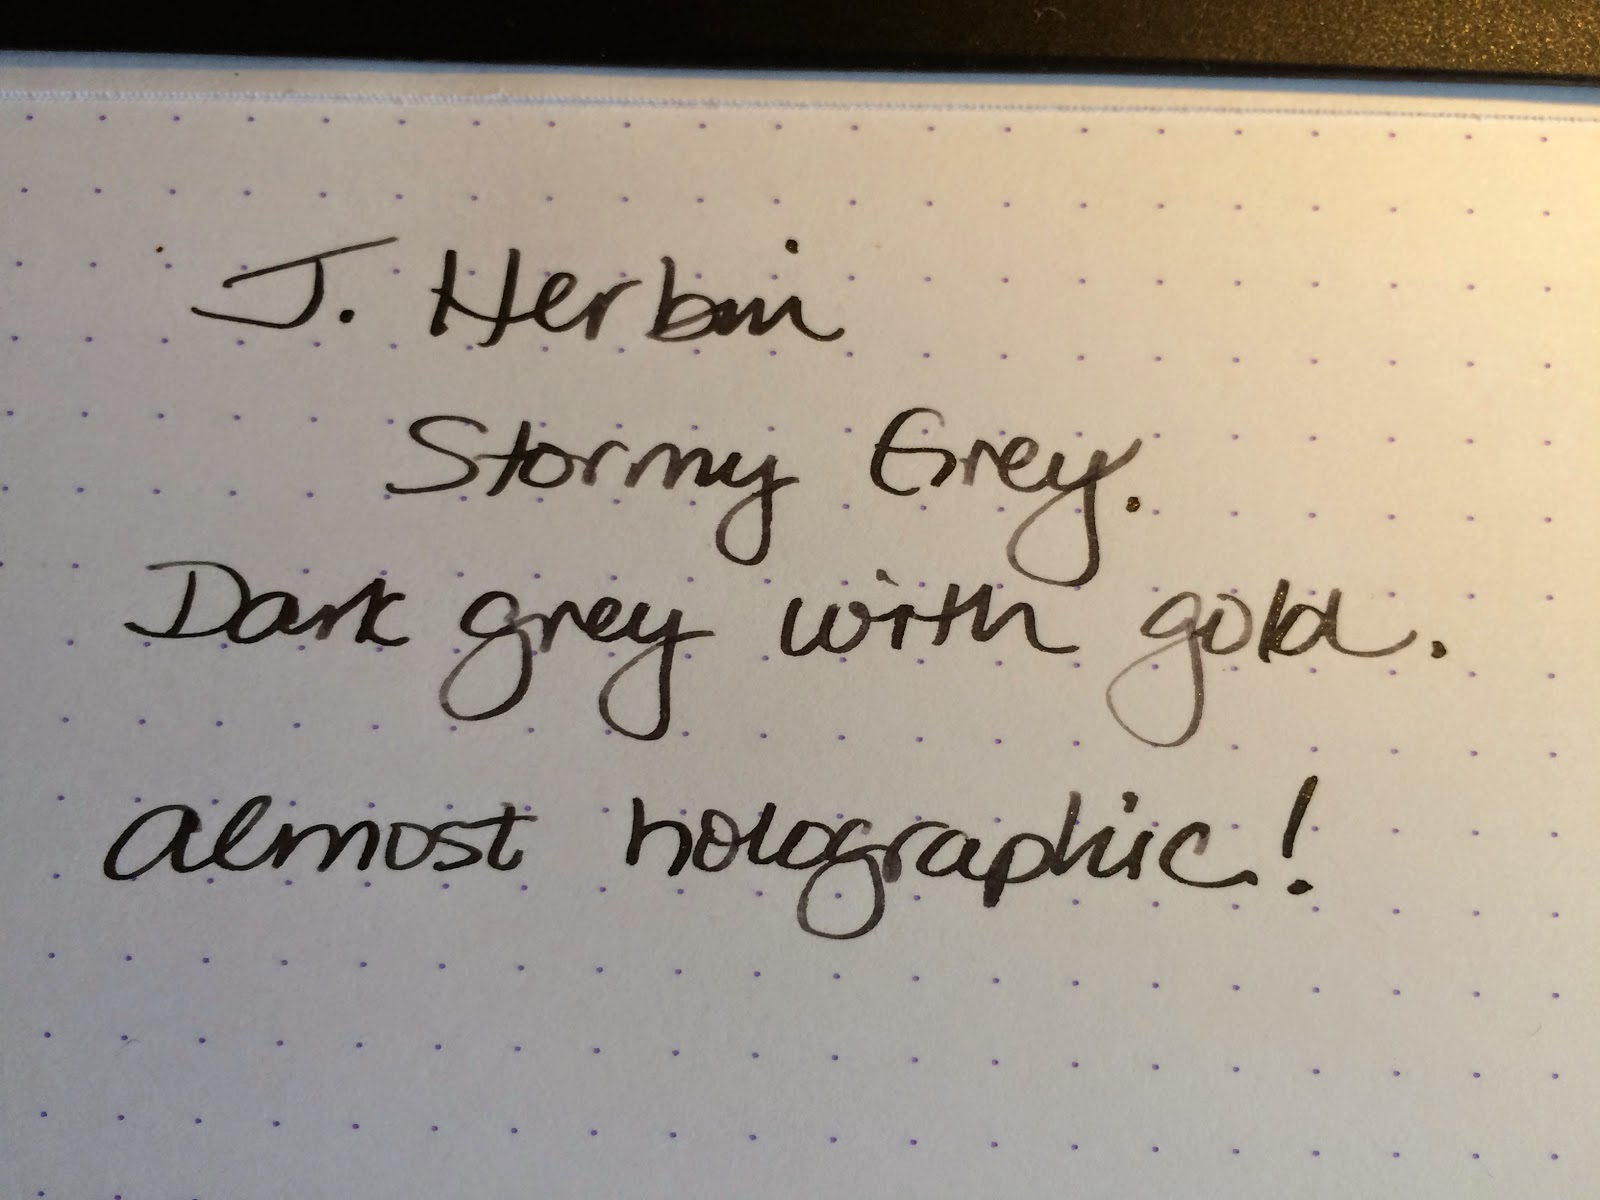 J. Herbin
Stormy Grey.
Dark grey with gold.
almost holographic!